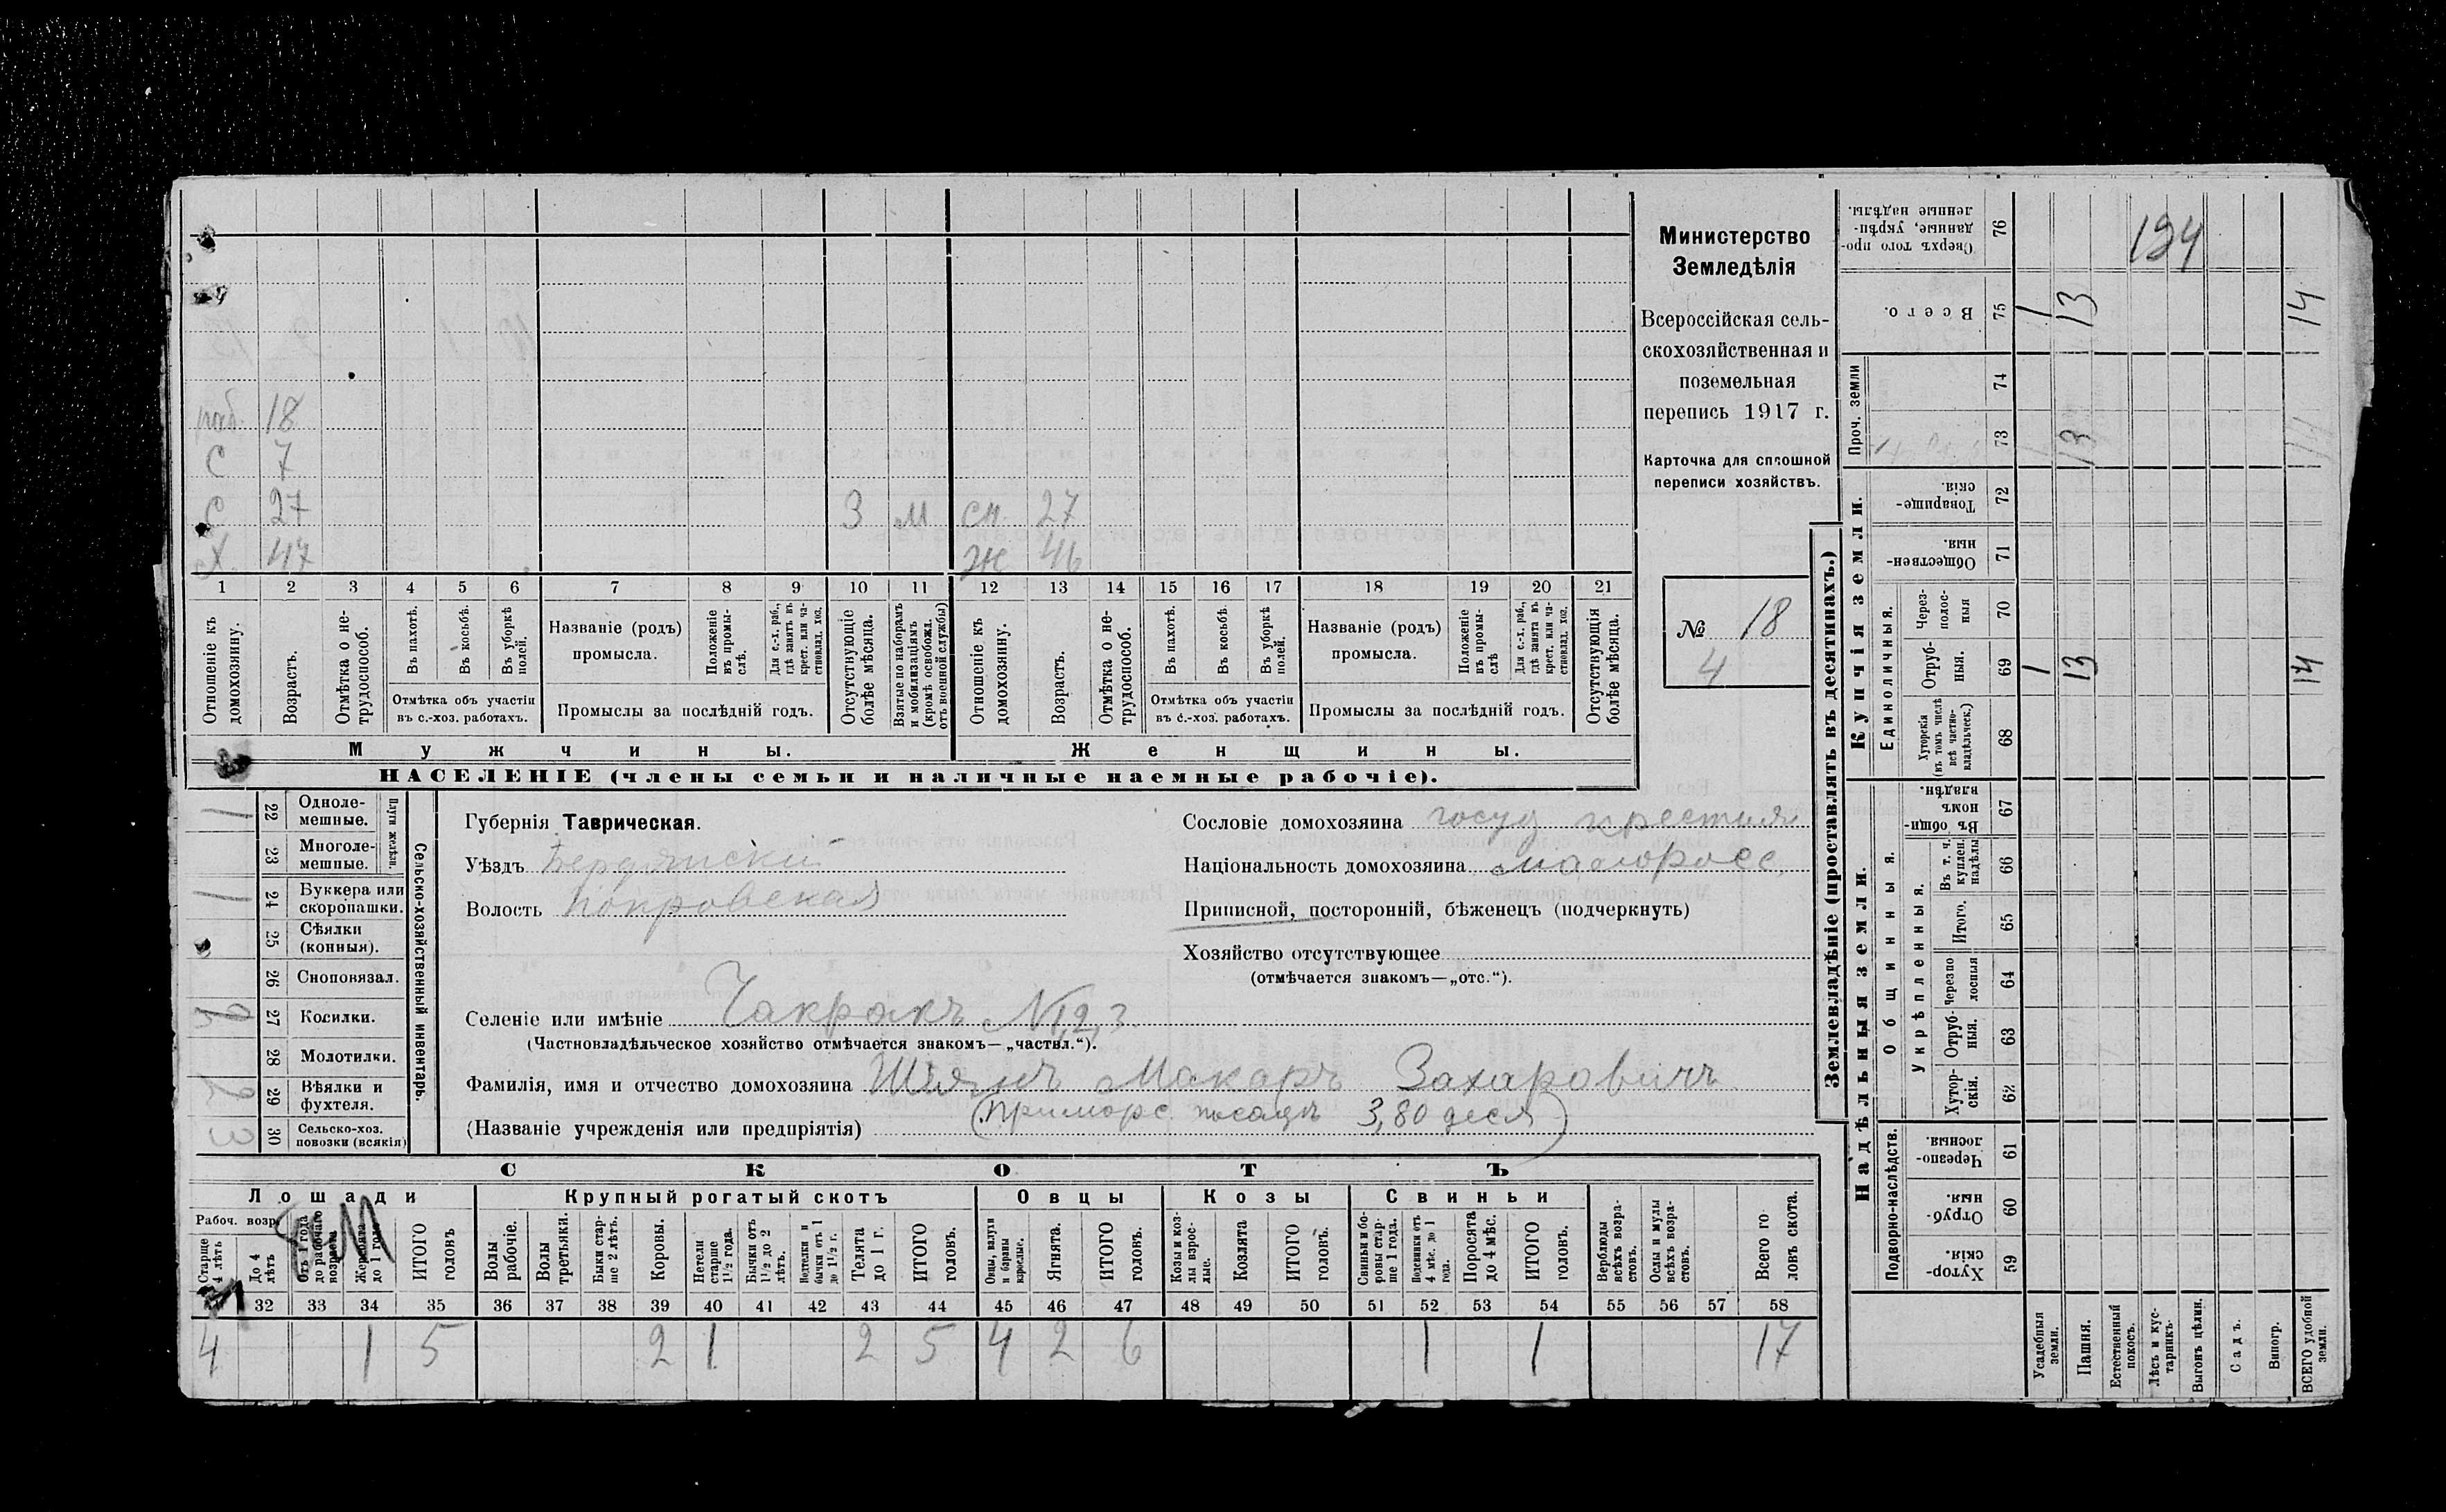 раб. 18
С 7
С 27 3 м сн. 27
Х. 47 ж 46
1 2 3 4 5 6 7 8 9 10 11 12 13 14 15 16 17 18 19 20 21
Отношеніе къ домохозяину.
Возрастъ.
Отмѣтка о не-
трудоспособ.
Въ пахотѣ.
Въ косьбѣ.
Въ уборкѣ полей.
Отмѣтка объ участіи
въ с.-хоз. работахъ.
Названіе (родъ)
промысла.
Положеніе въ промы-
слѣ.
Для с.-х. раб., гдѣ занятъ въ крест. или ча-
стновлад. хоз.
Промыслы за послѣдній годъ.
Отсутствующіе
болѣе мѣсяца.
Взятые по наборамъ
и мобилизаціямъ
(кромѣ освобожд.
отъ военной службы)
Отношеніе къ
домохозяину.
Возрастъ.
Отмѣтка о не-
трудоспособ.
Въ пахотѣ.
Въ косьбѣ.
Въ уборкѣ полей.
Отмѣтка объ участіи
въ с.-хоз. работахъ.
Названіе (родъ)
промысла.
Положеніе въ промы-
слѣ
Для с.-х. раб., гдѣ занята въ крест. или ча-
стновлад. хоз.
Промыслы за послѣдній годъ.
Отсутствующія
болѣе мѣсяца.
Мужчины.
Женщины.
НАСЕЛЕНІЕ (члены семьи и наличные наемные рабочіе).
Министерство
Земледѣлія
Всероссійская сель-
скохозяйственная и
поземельная
перепись 1917 г.
Карточка для сплошной
переписи хозяйствъ.
№ 18
4
Сельско-хозяйственный инвентарь.
Плуги желѣзн.
22 Одноле-
мешные. 1
23 Многоле-
мешные.
24 Буккера или
скоропашки. 1
25 Сѣялки
(конныя).
26 Сноповязал.
27 Косилки.
28 Молотилки.
29 Вѣялки и
фухтеля.
30 Сельско-хоз.
повозки (всякія) 3
Губернія Таврическая.
Уѣздъ Бердянскій
Волость Покровская
Сословіе домохозяина госуд крестьян
Національность домохозяина малоросс.
Приписной, посторонній, бѣженецъ (подчеркнуть)
Хозяйство отсутствующее
(отмѣчается знакомъ—„отс.“).
Селеніе или имѣніе Чакракъ № 1,2,3
(Частновладѣльческое хозяйство отмѣчается знакомъ—„частвл.“).
Фамилія, имя и отчество домохозяина Шіянъ Макаръ Захаровичъ
(Приморс. посадъ 3,80 деся)
(Названіе учрежденія или предпріятія)
СКОТЪ
Лошади
Крупный рогатый скотъ
Овцы
Козы
Свиньи
Рабоч. возр.
Старше 4 лѣтъ
До 4 лѣтъ
Отъ 1 года до рабочаго возраста
Жеребята до 1 года
ИТОГО головъ
Волы рабочіе.
Волы третьяки.
Быки стар-
ше 2 лѣтъ.
Коровы.
Нетели старше 1½ года.
Бычки отъ 1½ до 2 лѣтъ.
Нетелки и бычки отъ 1 до 1½ г.
Телята до 1 г.
ИТОГО головъ.
Овцы, валухи и бараны взрослые.
Ягнята.
ИТОГО головъ.
Козы и коз-
лы взрос-
лые.
Козлята
ИТОГО головъ.
Свиньи и бо-
ровы стар-
ше 1 года.
Подсвинки отъ 4 мѣс. до 1 года.
Поросята до 4 мѣс.
ИТОГО головъ.
Верблюды всѣхъ возра-
стовъ.
Ослы и мулы всѣхъ возра-
стовъ.
Всего го-
ловъ скота.
32 33 34 35 36 37 38 39 40 41 42 43 44 45 46 47 48 49 50 51 52 53 54 55 56 57 58
4 1 5 2 1 2 5 4 2 6 1 1 17
Землевладѣніе (проставлять въ десятинахъ.)
Сверхъ того про-
данные, укрѣп-
ленные надѣлы. 76 194
Всего. 75 1 13 14
Проч. земли
74
73 1 13 14
Купчія земли.
Товарище-
скія 72
Обществен-
ныя. 71
Единоличныя.
Через-
полос-
ныя 70
Отруб-
ныя. 69 1 13 14
Хуторскія
(въ томъ числѣ
всѣ частно-
владѣльческ.) 68
Надѣльныя земли.
Общинныя.
Въ общи-
номъ
владѣн. 67
Укрѣпленныя.
Въ т. ч.
куплен.
надѣлы 66
Итого. 65
Черезпо
лосныя 64
Отруб-
ныя. 63
Хутор-
скія. 62
Подворно-наслѣдств.
Черезпо-
лосныя. 61
Отруб-
ныя. 60
Хутор-
скія. 59
Усадебныя земли.
Пашня.
Естественный покосъ.
Лѣсъ и кус-
тарникъ.
Выгонъ цѣлин.
Садъ.
Виногр.
ВСЕГО удобной земли.